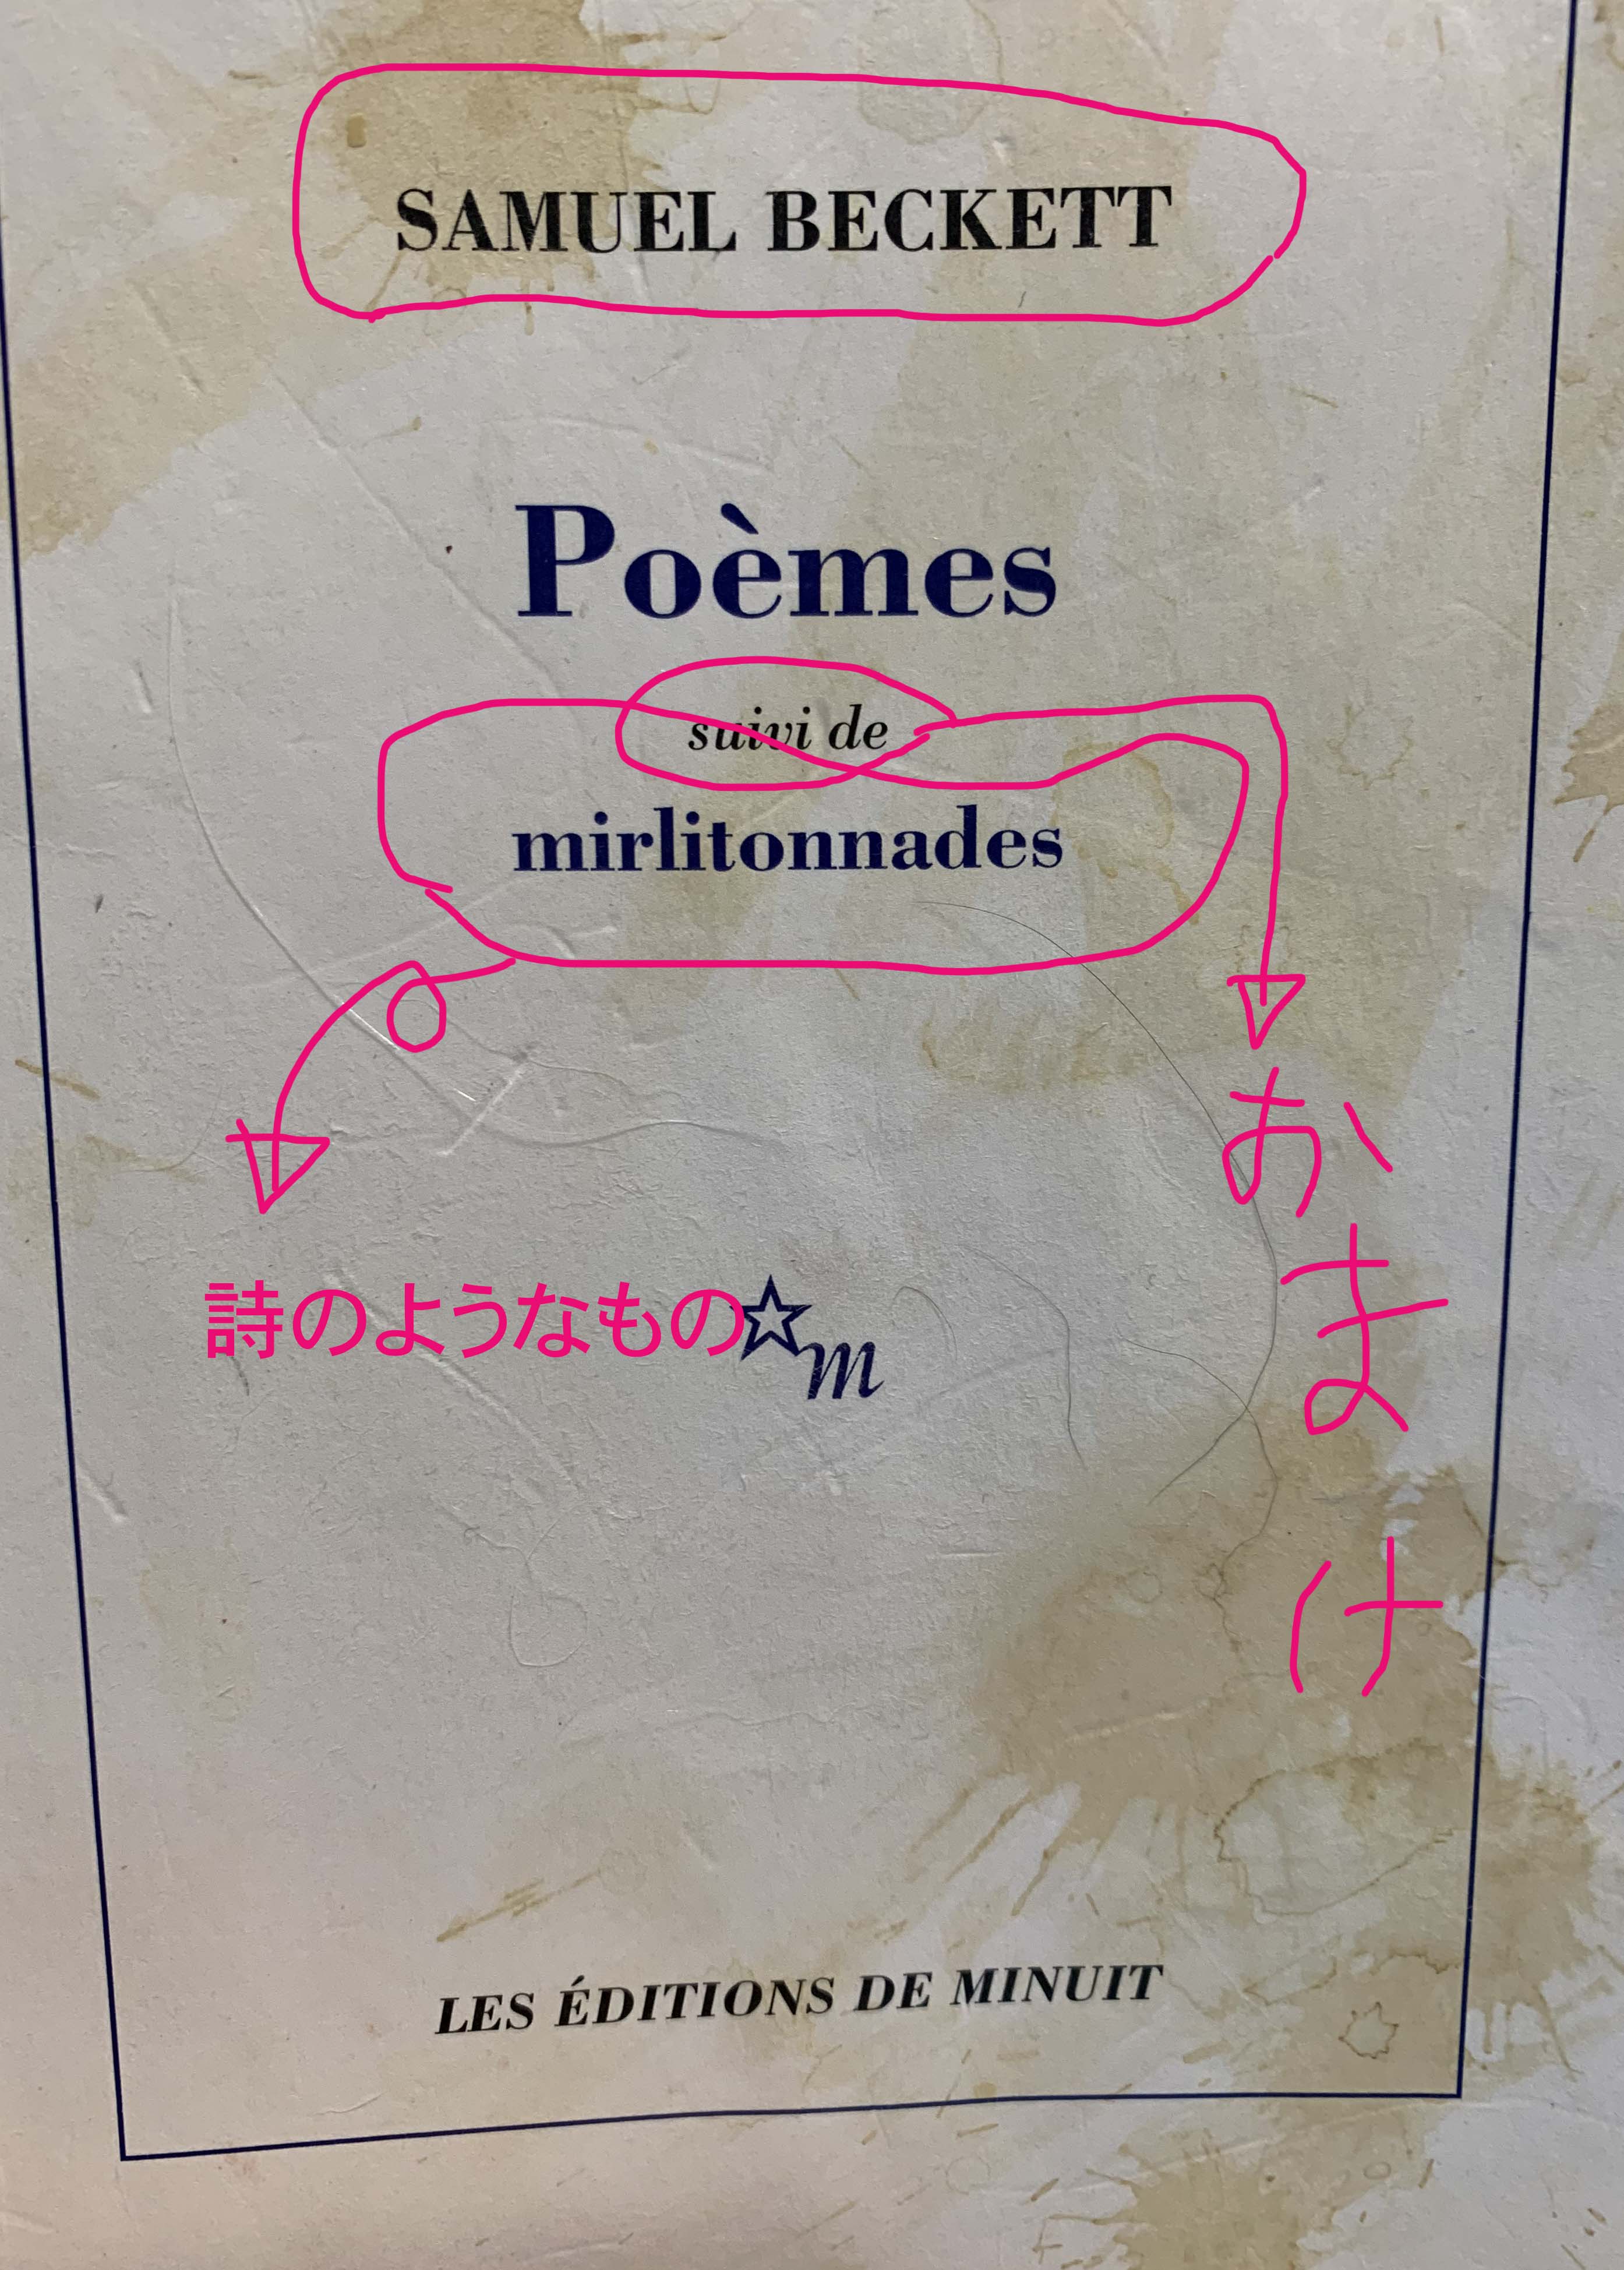 SAMUEL BECKETT
Poèmes
suivi de
mirlitonnades
おまけ
詩のようなもの
m
LES ÉDITIONS DE MINUIT